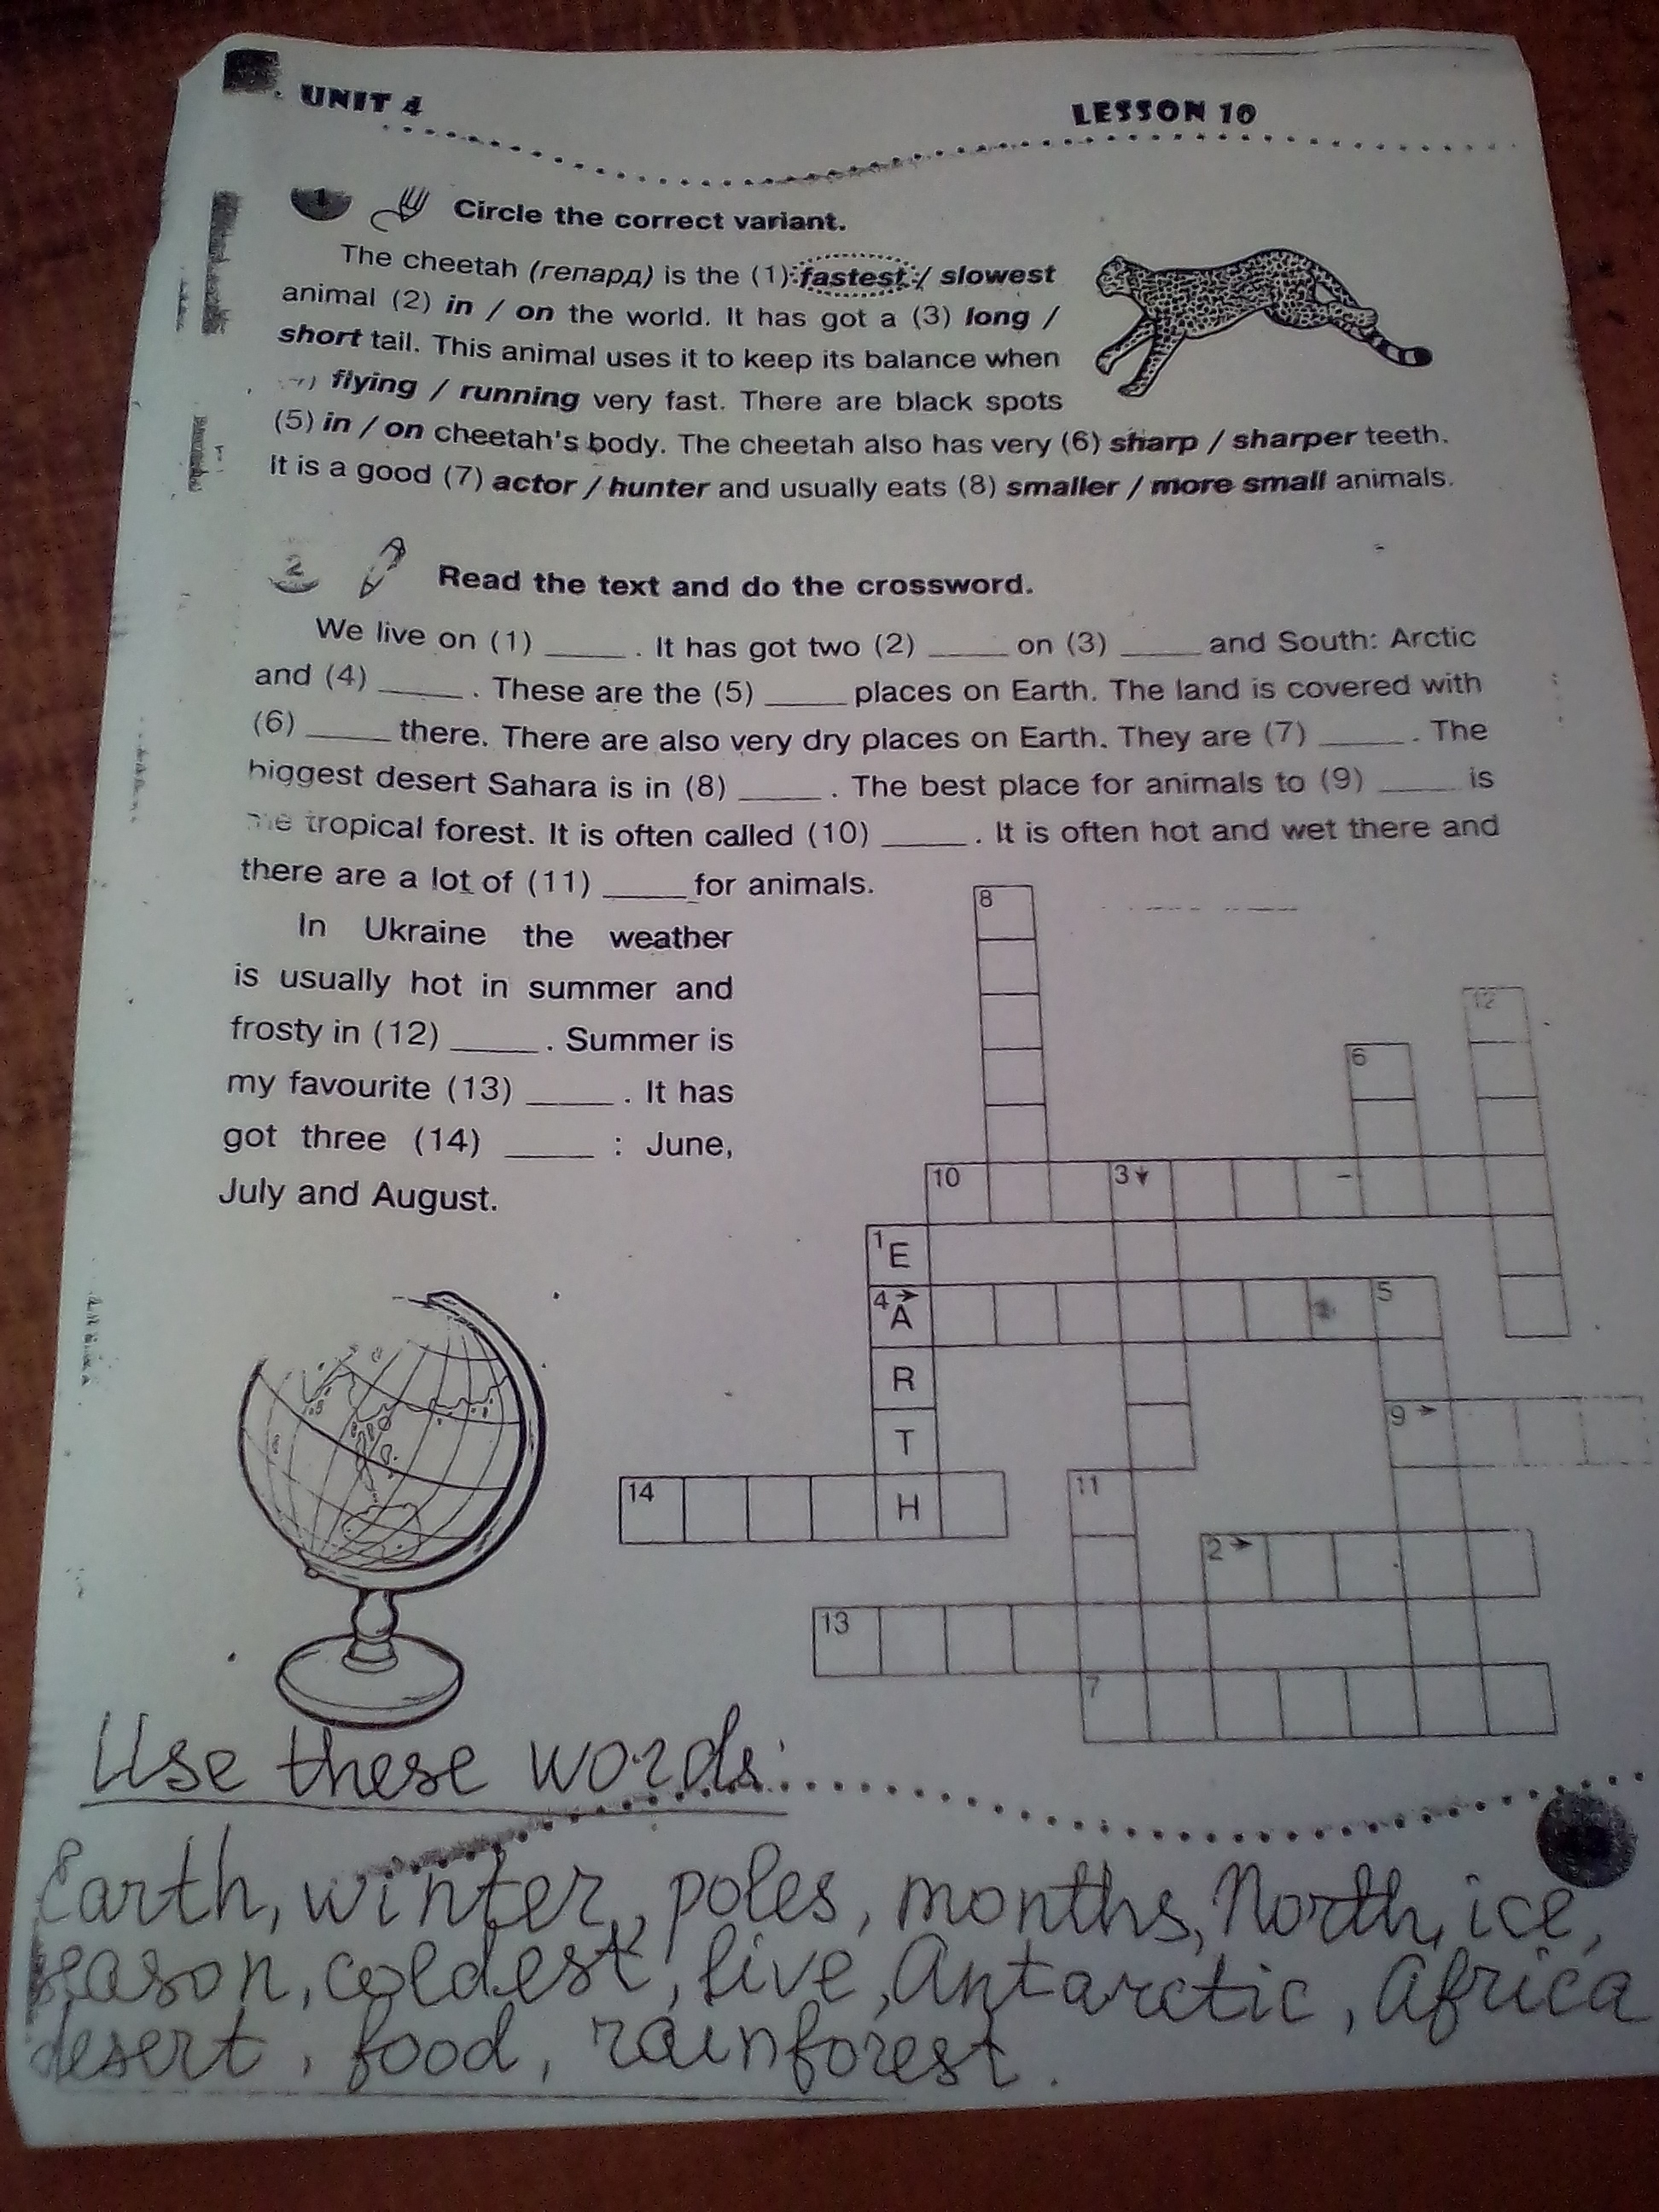 UNIT 4 LESSON 10
1 Circle the correct variant.
The cheetah (гепард) is the (1) fastest / slowest
animal (2) in / on the world. It has got a (3) long /
short tail. This animal uses it to keep its balance when
flying / running very fast. There are black spots
(5) in / on cheetah's body. The cheetah also has very (6) sharp / sharper teeth.
It is a good (7) actor / hunter and usually eats (8) smaller / more small animals.
2 Read the text and do the crossword.
We live on (1) _____ . It has got two (2) _____ on (3) _____ and South: Arctic
and (4) _____ . These are the (5) _____ places on Earth. The land is covered with
(6) _____ there. There are also very dry places on Earth. They are (7) _____ . The
biggest desert Sahara is in (8) _____ . The best place for animals to (9) _____ is
the tropical forest. It is often called (10) _____ . It is often hot and wet there and
there are a lot of (11) _____ for animals.
In Ukraine the weather
is usually hot in summer and
frosty in (12) _____ . Summer is
my favourite (13) _____ . It has
got three (14) _____ : June,
July and August.
8
12
6
10 3
1 E
4 A 5
R
9
T
14 H 11
2
13
7
Use these words:
Earth, winter, poles, months, North, ice,
season, coldest, live, Antarctic, Africa
desert, food, rainforest.